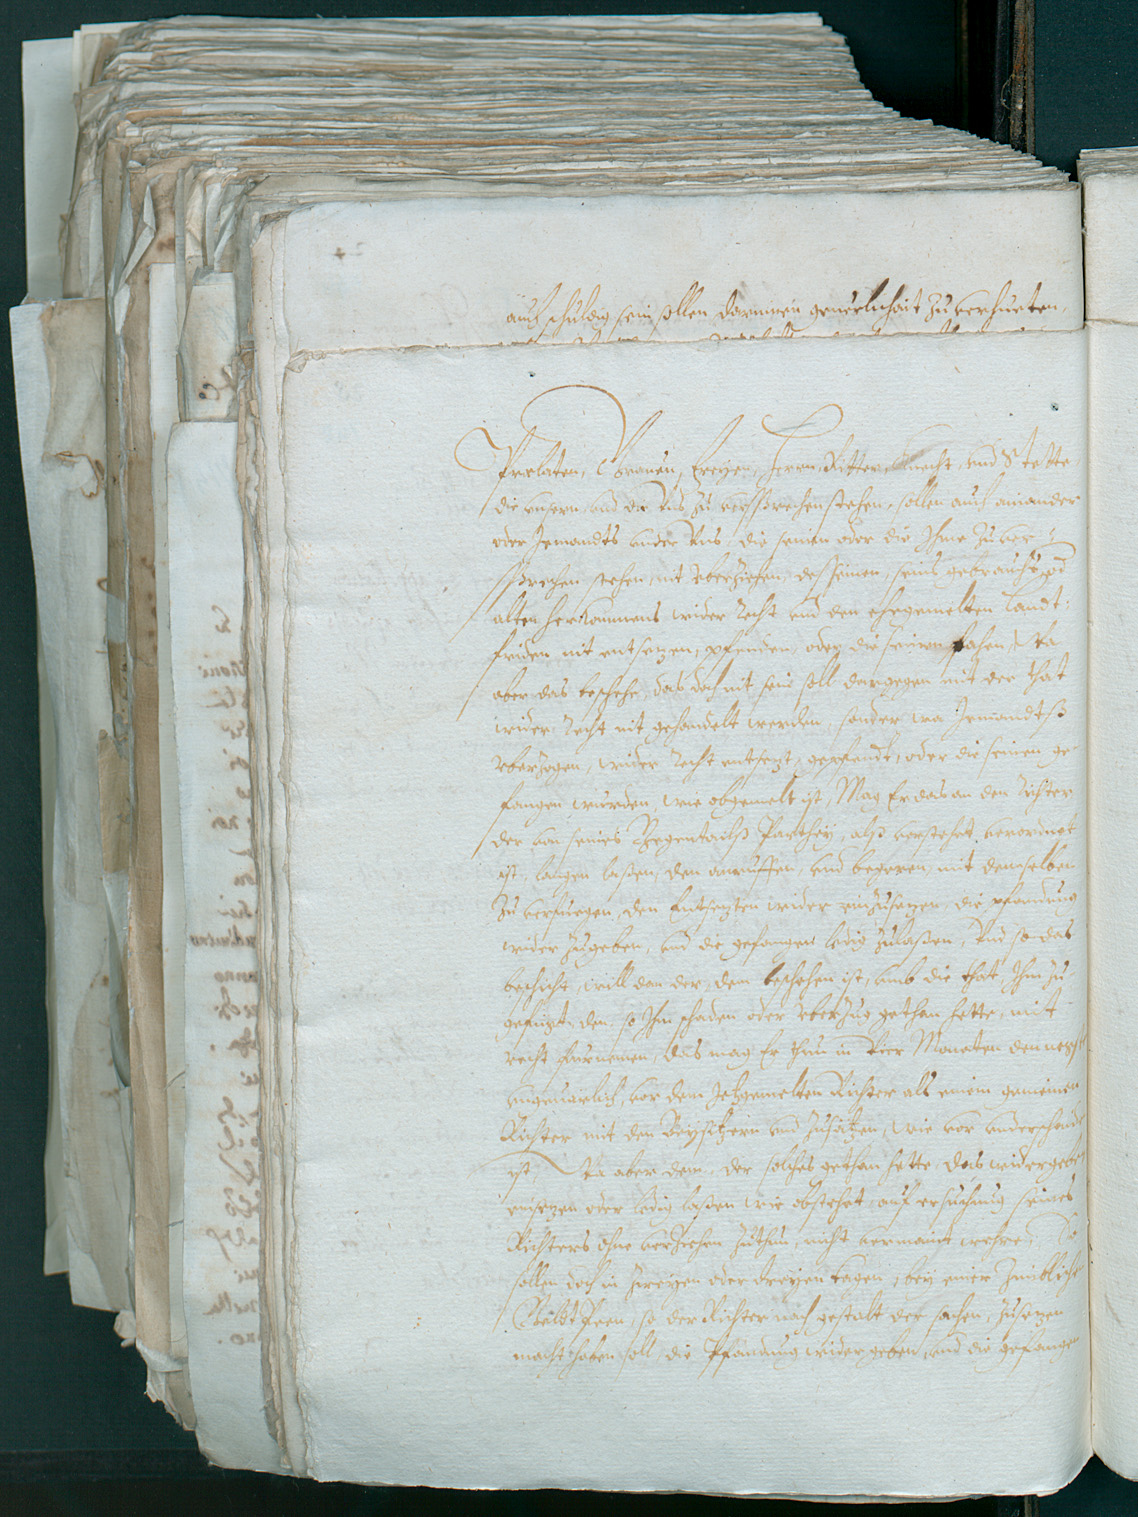 auch schuldig sein sollen darinnen geuerlichait zu verhueten,
Prelaten, Grauen, Freyen, Herrn, Ritter, Knecht, und Stette
die unsern und die Uns zu versprechen stehen, sollen auch ainander
oder Jemandts under Uns, die seinen oder die Ihme zu ver¬
sprechen stehen, nit uberziehen, des seinen, seins gebrauchs und
alten herkommens wider Recht und den ehegemelten Landt¬
friden nit entsetzen, pfenden, oder die seinen fahen, Wa
aber das beschehe, das doch nit sein soll dargegen mit der that
wider Recht nit gehandelt werden, sonder wa Jemandtß
uberzogen, wider Recht entsetzt, gepfendt, oder die seinen ge¬
fangen wurden, wie obgemelt ist, Mag Er das an den Richter
der von seines Gegentailß Parthey, alß verstehet verordnet
ist, langen laßen, den anruffen, und begeren, mit demselben
zu verfuegen, den Entsetzten wider einzusetzen, die pfandung
wider zugeben, und die gefangen ledig zulaßen, Und so das
beschicht, will dan der, dem beschehen ist, umb die that Ihm zu
gefuegt, den, so Ihm schaden oder uberzug gethan hette, mit
recht furnemen, das mag Er thun in Vier Monaten den negst
ungeuärlich, vor dem Jetzgemelten Richter als einem gemeinen
Richter mit den Beysitzern und Zusätzen, wie vor underschaid
ist, Wa aber dem, der solches gethan hette, das widergeben
einsetzen oder ledig laßen wie obstehet, auf ersuchung seines
Richters ohne verziehen zuthun, nicht vermaint wehre, So
sollen doch in zweyen oder dreyen tagen, bey einer zimblichen
Geldt Peen, so der Richter nach gestalt der sachen, zusetzen
macht haben soll, die Pfandung wider geben, und die gefangen